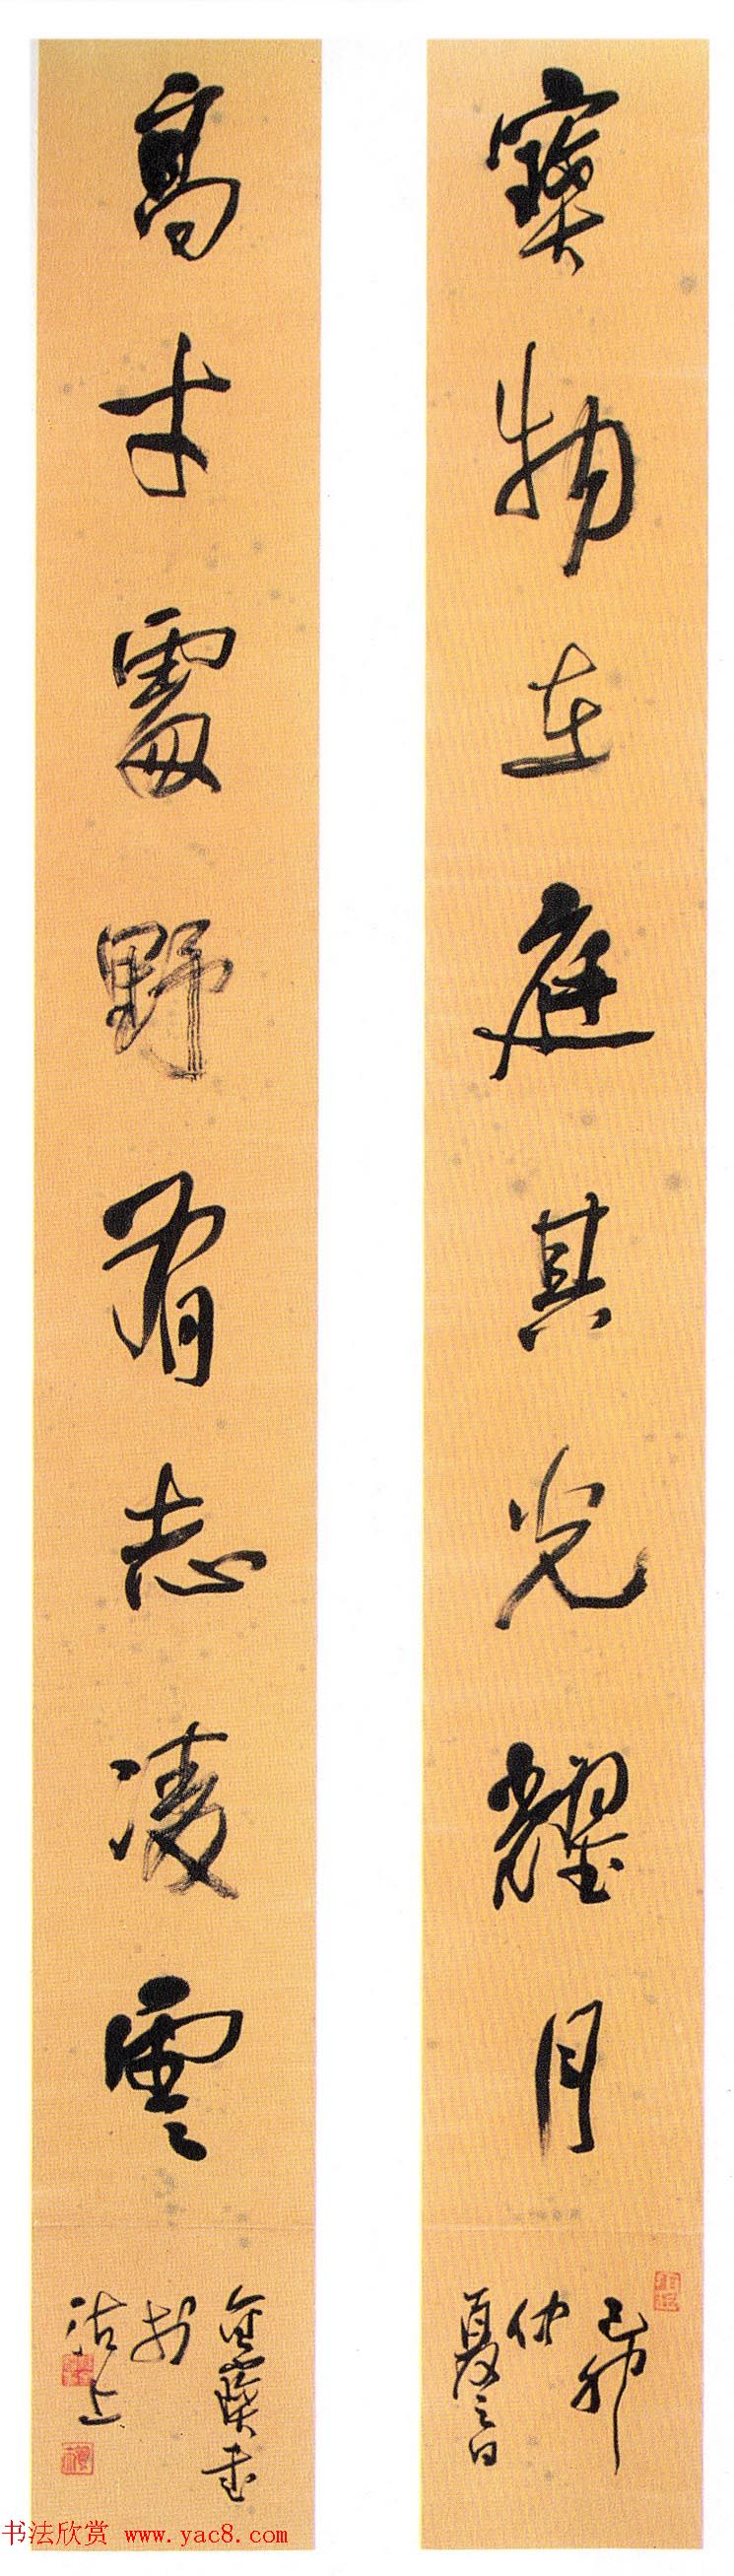 寶物在庭其光耀月
己卯
仲
夏之日
高才處野有志凌雲
寶書
於
沽上
书法欣赏 www.yac8.com